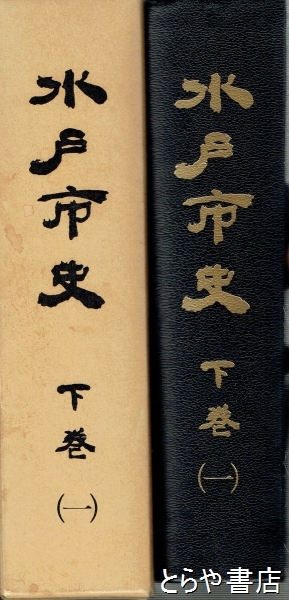 水戸市史
下巻
(一)
水戸市史
下巻
(一)
とらや書店